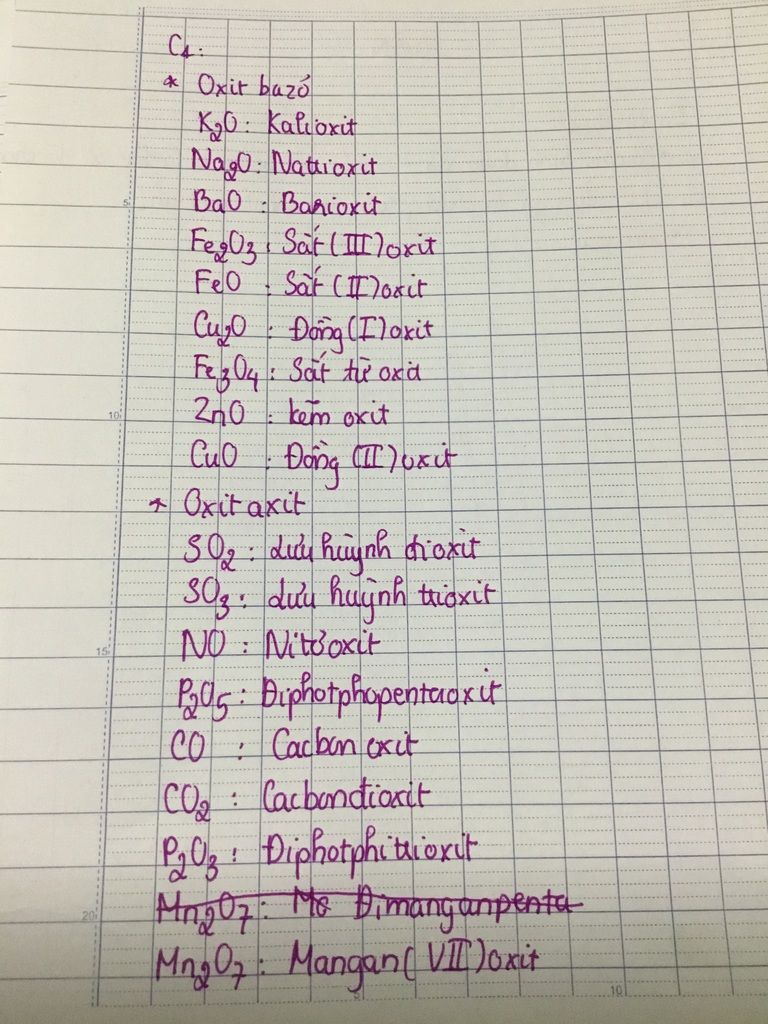 C1:
* Oxit bazơ
K2O: Kalioxit
Na2O: Natrioxit
BaO: Barioxit
5
Fe2O3: Sắt (III) oxit
FeO: Sắt (II) oxit
Cu2O: Đồng (I) oxit
Fe3O4: Sắt từ oxit
10 ZnO: kẽm oxit
CuO: Đồng (II) oxit
* Oxit axit
SO2: lưu huỳnh đioxit
SO3: lưu huỳnh trioxit
15 NO: Nitơoxit
P2O5: Điphotphopentaoxit
CO: Cacbon oxit
CO2: Cacbonđioxit
P2O3: Điphotphitrioxit
20 Mn2O7: Mo Đimanganpenta
Mn2O7: Mangan (VII) oxit
5 10